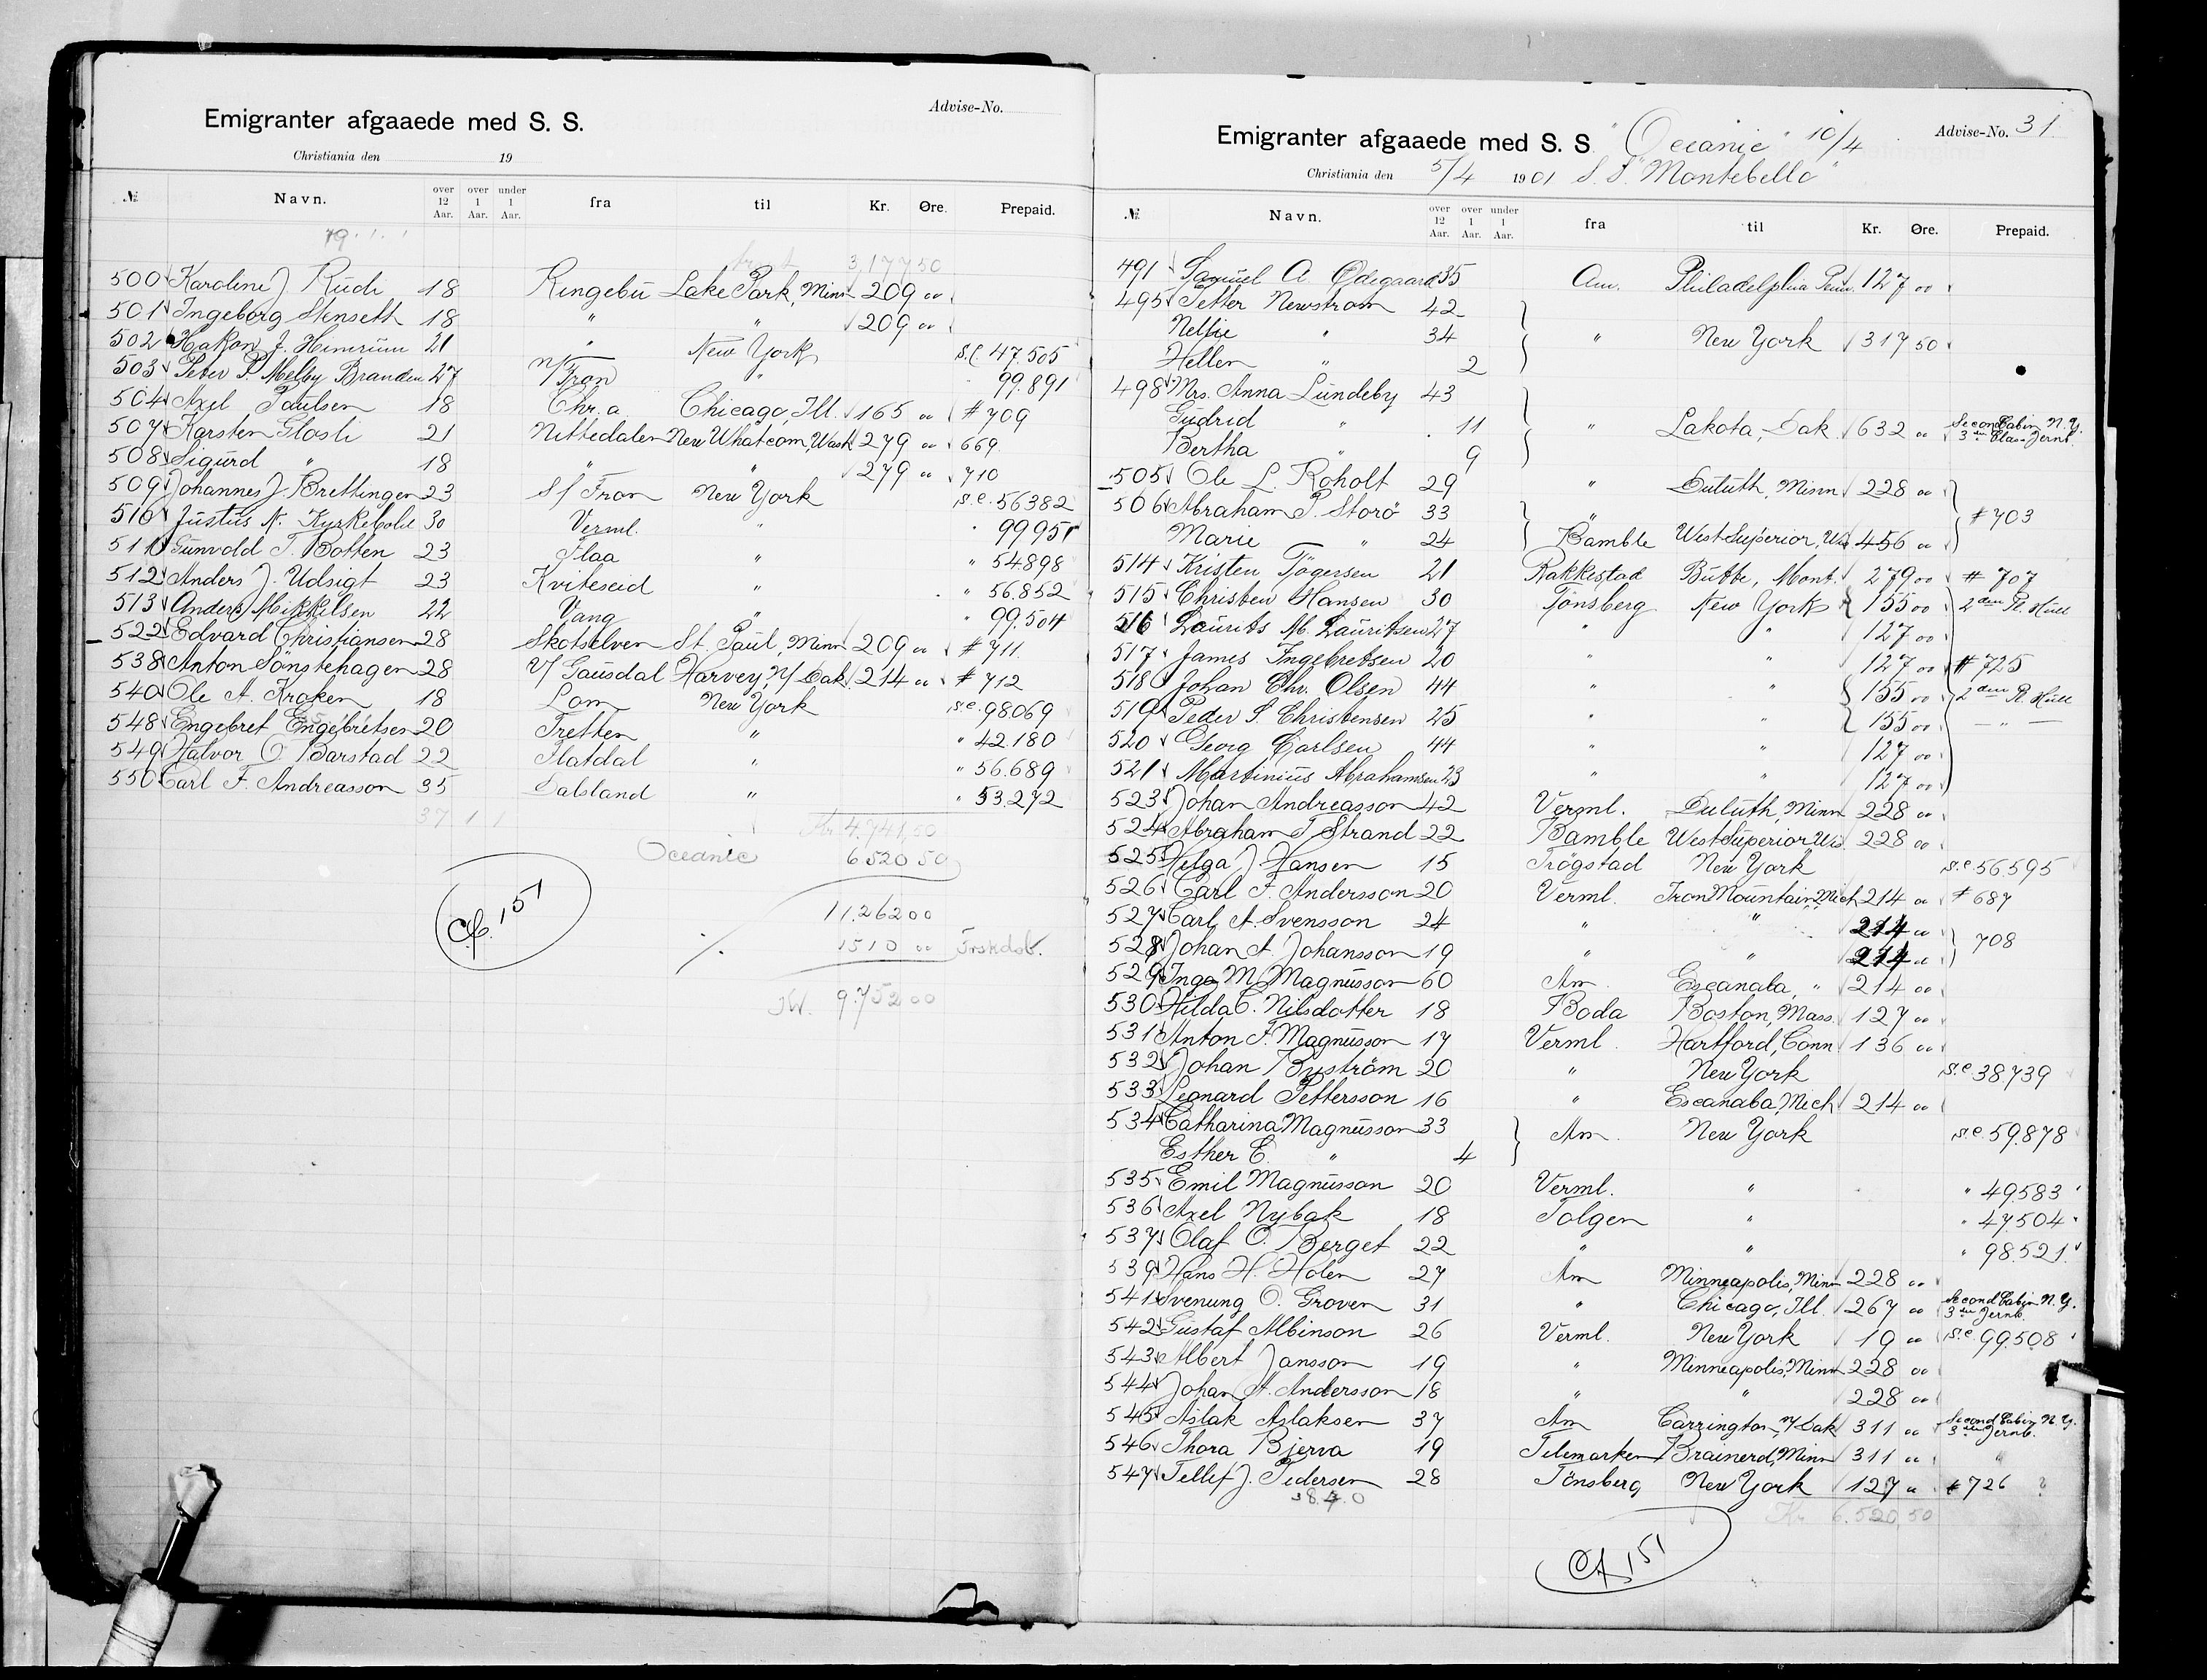 Advise-No.
Emigranter afgaaede med S. S.
Christiania den 19
№ Navn. over 12 Aar. over 1 Aar. under 1 Aar. fra til Kr. Øre. Prepaid.
3,177 50
500 Karoline J. Rudi 18 Ringebu Lake Park, Minn 209 00
501 Ingeborg Stenseth 18 " " 209 00
502 Hakon J. 21 " New York s.c. 47.505
503 Peter P. Melby Branden 27 N/Fron " 99.891
504 Axel Paulsen 18 Chr.a Chicago, Ill. 165 00 # 709
507 Karsten Glosli 21 Nittedalen New Whatcom, Wash 279 00 669
508 Sigurd " 18 " " 279 00 710
509 Johannes J. Brettingen 23 S/Fron New York s.c. 56382
510 Justus N. Kyrkebolie 30 Verml. " 99951
511 Gunvold T. Botten 23 Flaa " " 54898
512 Anders J. Udsigt 23 Kviteseid " " 56.852
513 Anders Mikkelsen 22 Vang " " 99.504
522 Edvard Christiansen 28 Skotselven St. Paul, Minn 209 00 # 711
538 Anton Sönstehagen 28 V/Gausdal Harvey, N/Dak. 214 00 # 712
540 Ole A. Kroken 18 Lom New York s.c. 98069
548 Engebret Engebretsen 20 Tretten " " 42.180
549 Halvor O. Barstad 22 Flatdal " " 56.689
550 Carl F. Andreasson 35 Dalsland " " 53.272
37 1 1 Kr. 4.741,50
Oceanic 6520 50
11.262 00
Cfr. 151
./. 1510 00
9.752 00
Emigranter afgaaede med S. S. "Oceanic" 10/4 Advise-No. 31
Christiania den 5/4 1901 S. S. "Montebello"
№ Navn. over 12 Aar. over 1 Aar. under 1 Aar. fra til Kr. Øre. Prepaid.
491 Samuel A. Ødegaard 35 Am. Philadelphia Penn. 127 00
495 Petter Newstrom 42
Nellie " 34 " New York 317 50
Hellen " 2
498 Mrs. Anna Lundeby 43
Gudrid " 11 " Lakota, Dak. 632 00 Second Cabin N.Y. 3die Class Jernb.
Bertha " 9
505 Ole L. Roholt 29 " Duluth, Minn 228 00
506 Abraham P. Storö 33 " # 703
Marie " 24 Bamble West Superior, Wis 456 00
514 Kristen Tögersen 21 Rakkestad Butte, Mont. 279 00 # 707
515 Christen Hansen 30 Tönsberg New York 155 00 2den Pl. Hull
516 Laurits M. Lauritsen 27 " " 127 00
517 James Ingebretsen 20 " " 127 00 # 725
518 Johan Chr. Olsen 44 " " 155 00 2den Pl. Hull
519 Peder S. Christensen 25 " " 155 00 — " —
520 Georg Carlsen 44 " " 127 00
521 Martinius Abrahamsen 23 " " 127 00
523 Johan Andreasson 42 Verml. Duluth, Minn 228 00
524 Abraham T. Strand 22 Bamble West Superior Wis 228 00
525 Helga J. Hansen 15 Trögstad New York s.c. 56,595
526 Carl F. Andersson 20 Verml. Iron Mountain, Mich 214 00 # 687
527 Carl A. Svensson 24 " " 214 00
528 Johan A. Johansson 19 " " 214 00 708
529 Inga M. Magnusson 60 Am. Escanaba, " 214 00
530 Hilda C. Nilsdotter 18 Boda Boston, Mass. 127 00
531 Anton F. Magnusson 17 Verml. Hartford, Conn 136 00
532 Johan Byström 20 " New York s.c. 38.739
533 Leonard Pettersson 16 " Escanaba, Mich 214 00
534 Catharina Magnusson 33 Am. New York s.c. 59.878
Esther E. " 4
535 Emil Magnusson 20 Verml. " " 49.583
536 Axel Nybak 18 Tolgen " " 47504
537 Olaf O. Berget 22 " " " 98.521
539 Hans H. Holen 27 Am Minneapolis, Minn 228 00
541 Svenung O. Groven 31 " Chicago, Ill. 267 00 Second Cabin N.Y. 3die Jernb.
542 Gustaf Albinson 26 Verml. New York 19 00 s.c. 99.508
543 Albert Jansson 19 " Minneapolis, Minn 228 00
544 Johan A. Andersson 18 " " 228 00
545 Aslak Aslaksen 37 Am Carrington, N/Dak 311 00 Second Cabin N.Y. 3die Jernb.
546 Thora Bjerva 19 Telemarken Brainerd, Minn 311 00 "
547 Tellef J. Pedersen 28 Tönsberg New York 127 00 # 726
38.4.0 Kr. 6.520,50
Cfr. 151